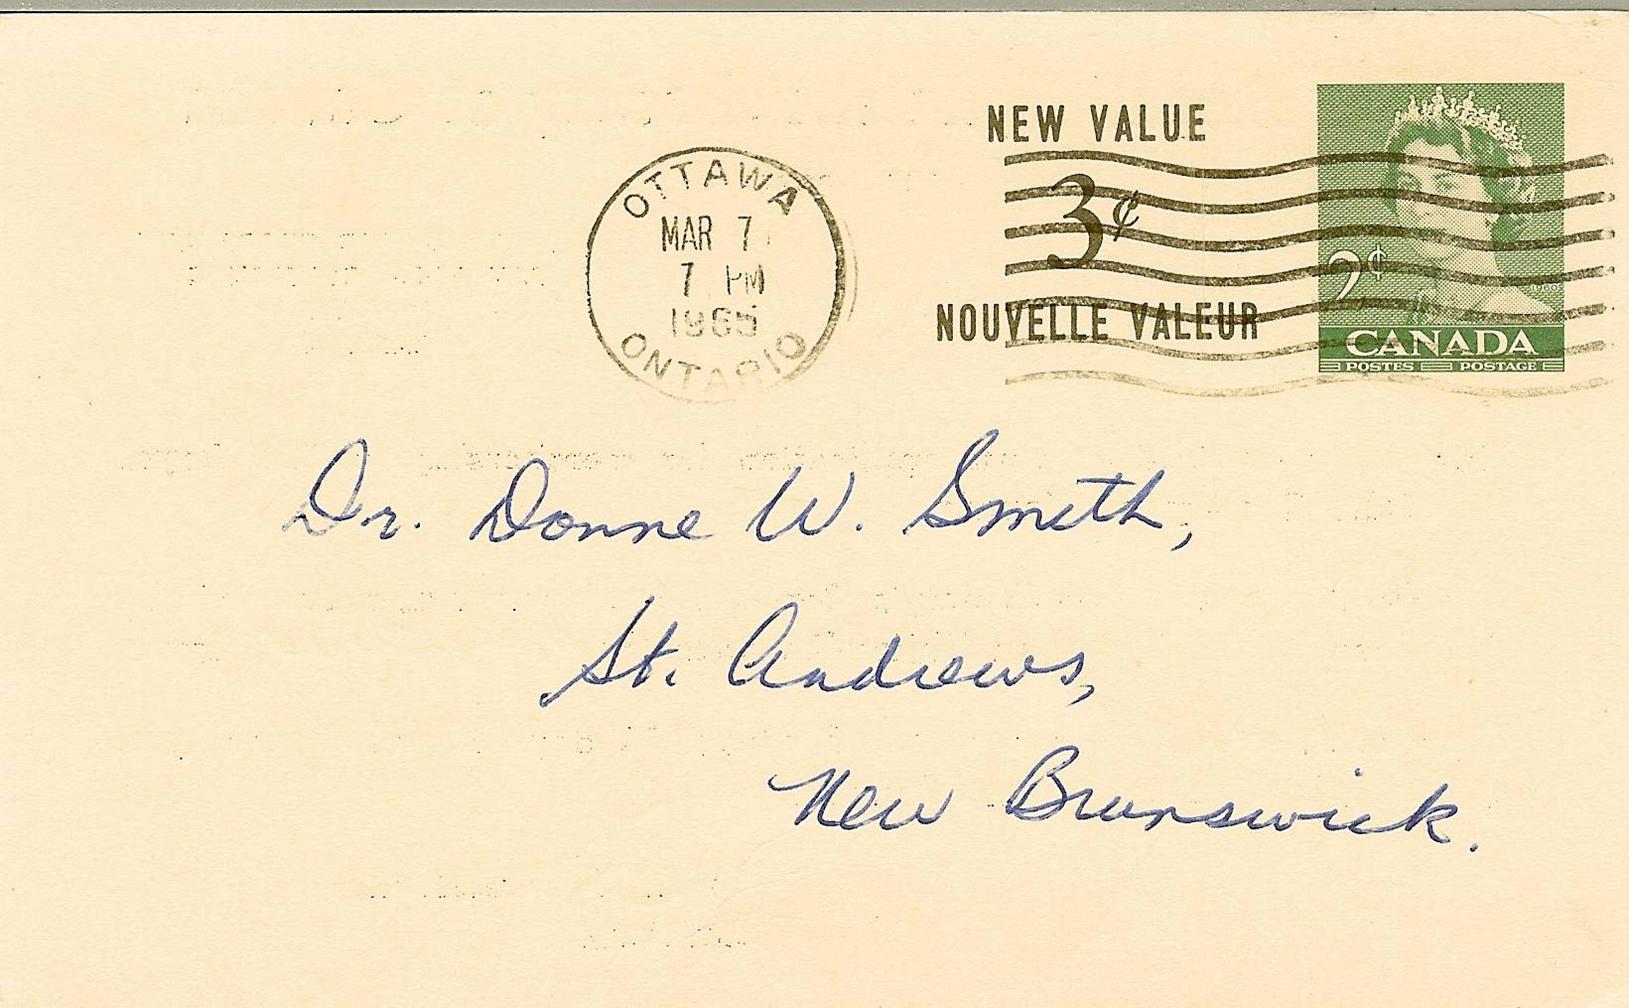 NEW VALUE
3¢
NOUVELLE VALEUR
OTTAWA
MAR 7
7 PM
1965
ONTARIO
2¢
CANADA
POSTES POSTAGE
Dr. Donne W. Smith,
St. Andrews,
New Brunswick.